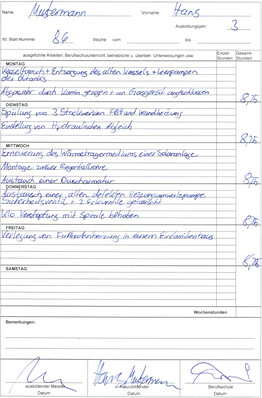 Name: Mustermann Vorname Hans
Ausbildungsjahr: 3
Nr. Blatt-Nummer 86 Woche vom bis
ausgeführte Arbeiten, Berufsschulunterricht, betriebliche u. überbetr. Unterweisungen usw. Einzel-Stunden Gesamt-Stunden
MONTAG
Kesseltausch + Entsorgung des alten Kessels + Leerpumpen
des Öltanks
Abgasrohr durch Kamin gezogen + an Gasgerät angeschlossen
8,25
DIENSTAG
Spülung von 3 Stockwerken FBH und Wandheizung
Erstellung von Hydraulischen Abgleich
8,25
MITTWOCH
Erneuerung des Wärmeträgermediums einer Solaranlage
Montage zweier Regenfallrohre
Austausch einer Duscharmatur
8,25
DONNERSTAG
Austausch einer alten defekten Heizungsumwälzpumpe
Sicherheitsventil + 2 Eckventile getauscht
Klo Verstopfung mit Spirale behoben
8,25
FREITAG
Verlegung von Fußbodenheizung in einem Einfamilienhaus
8,25
SAMSTAG
Wochenstunden
Bemerkungen:
Hans Mustermann
ausbildender Meister Auszubildender Berufsschule
Datum Datum Datum